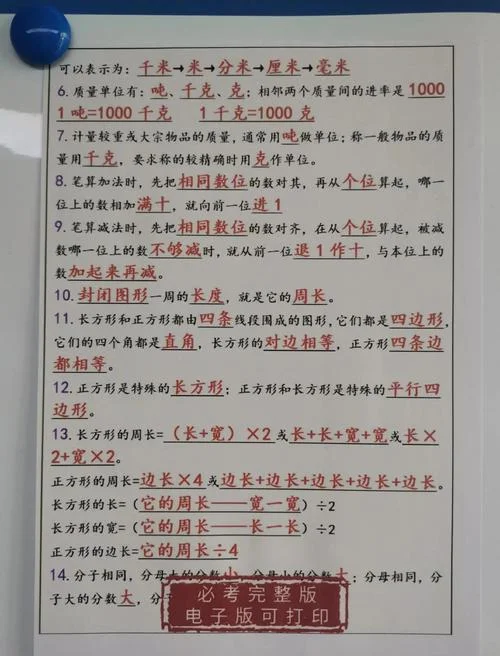 可以表示为：千米→米→分米→厘米→毫米
6. 质量单位有：吨、千克、克；相邻两个质量间的进率是 1000
1 吨=1000 千克  1 千克=1000 克
7. 计量较重或大宗物品的质量，通常用吨做单位；称一般物品的质
量用千克，要求称的较精确时用克作单位。
8. 笔算加法时，先把相同数位的数对其，再从个位算起，哪一
位上的数相加满十，就向前一位进 1
9. 笔算减法时，先把相同数位的数对齐，在从个位算起，被减
数哪一位上的数不够减时，就从前一位退 1 作十，与本位上的
数加起来再减。
10. 封闭图形一周的长度，就是它的周长。
11. 长方形和正方形都由四条线段围成的图形，它们都是四边形，
它们的四个角都是直角，长方形的对边相等，正方形四条边
都相等。
12. 正方形是特殊的长方形；正方形和长方形是特殊的平行四
边形。
13. 长方形的周长=（长+宽）×2 或长+长+宽+宽或长×
2+宽×2。
正方形的周长=边长×4 或边长+边长+边长+边长+边长。
长方形的长=（它的周长——宽一宽）÷2
长方形的宽=（它的周长——长一长）÷2
正方形的边长=它的周长÷4
14. 分子相同，分母大的分数小，分母小的分数大；分母相同，分
子大的分数大，分子
必考完整版
电子版可打印